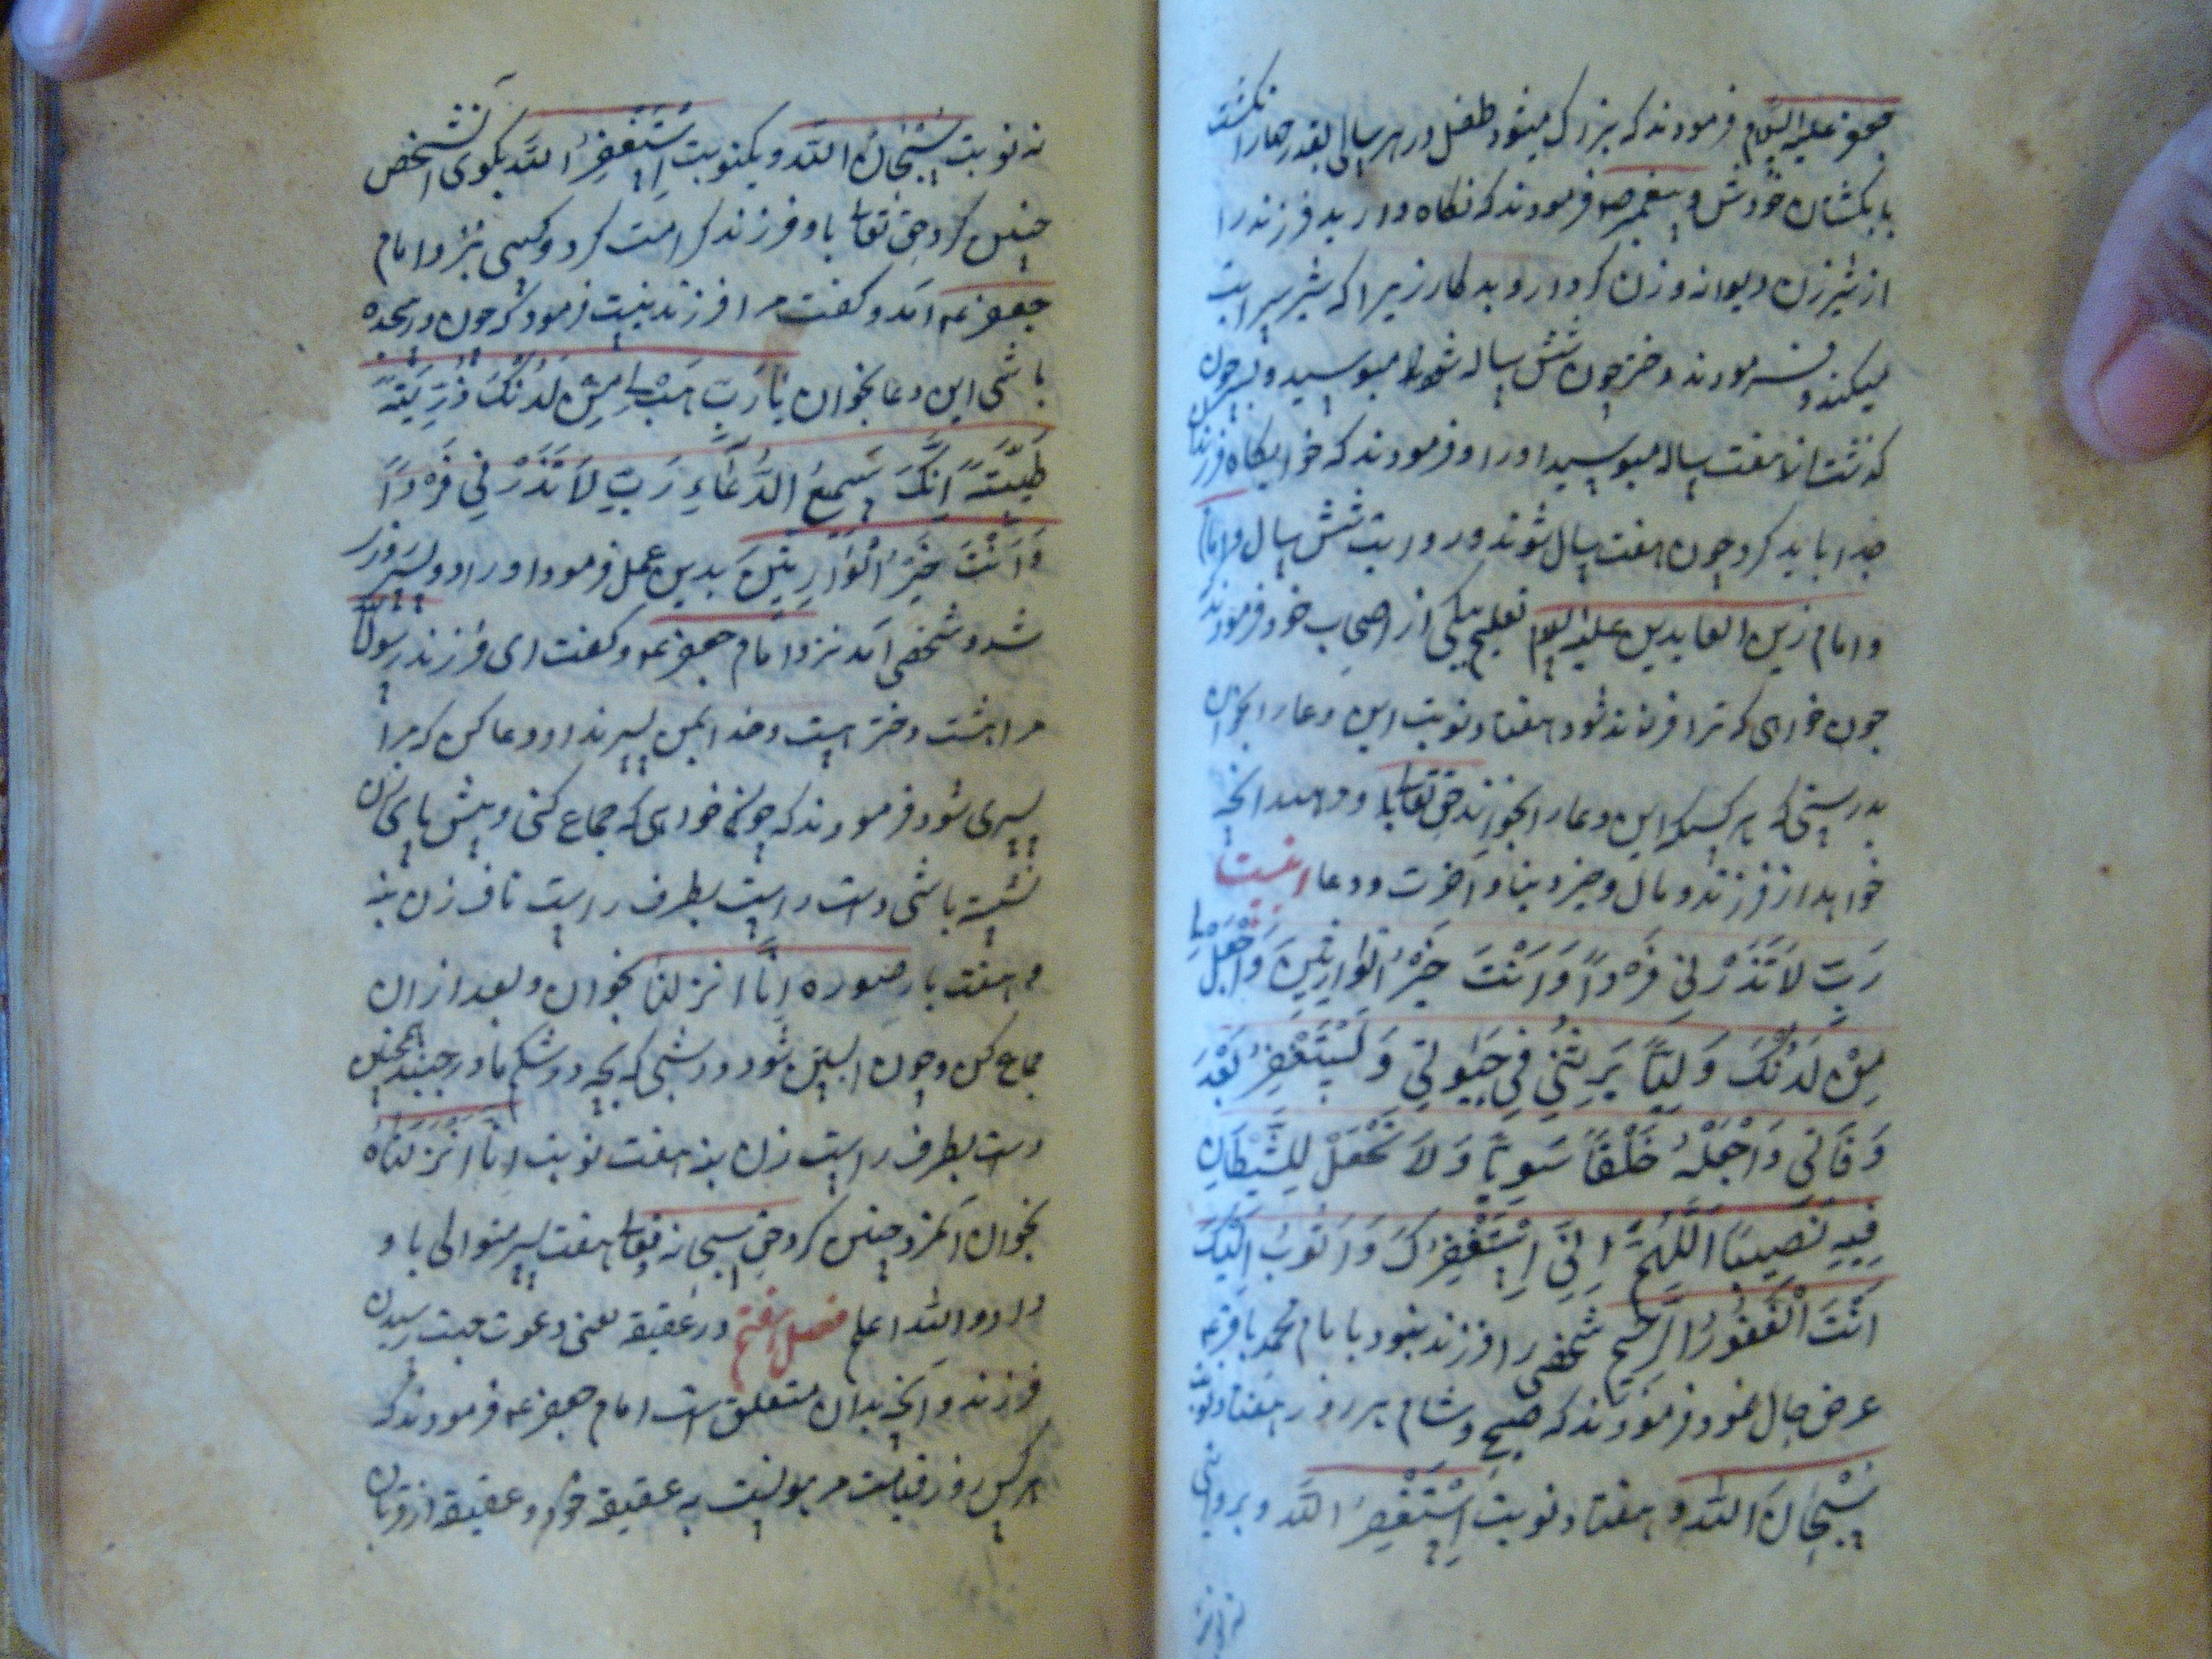 جعفر علیه السلام فرمودند که بزرگ میشود طفل در هر سالی بقدر چهار انکشت
بانکشتان خودش و پیغمبر ص فرمودند که نکاه دارید فرزند را
از شیر زن دیوانه و زن کرد درد زیرا که شیر سرایت
میکند و فرمودند دختر چون شش ساله شود میوسید و پسر چون
هفت ساله میوسید او را و فرمودند که خوابکاه فرزندان
جدا باید کرد چون هفت سال شوند و روایت شش سال
و امام زین العابدین علیه السلام تعلیم یکی از اصحاب خود فرمودند که
چون خواهی که ترا فرزند شود هفتاد نوبت این دعا را بخوان
بدرستی که هر کس که این دعا را بخواند حق تعالی باو دهد انچه
خواهد از فرزند و مال و خیر دنیا و آخرت و دعا اینست
رَبِّ لَا تَذَرْنِی فَرْداً وَاَنْتَ خَیْرُ الْوَارِثِینَ وَاجْعَلْ لِی
مِنْ لَدُنْکَ وَلِیّاً یَرِثُنِی فِی حَیٰوتِی وَیَسْتَغْفِرُ بَعْدَ
وَفَاتِی وَاجْعَلْهُ خَلْقاً سَوِیّاً وَلَا تَجْعَلْ لِلشَّیْطَانِ
فِیهِ نَصِیباً اَللّٰهُمَّ اِنِّی اَسْتَغْفِرُکَ وَاَتُوبُ اِلَیْکَ
اَنْتَ الْغَفُورُ الرَّحِیمُ شخصی را فرزند نبود بامام محمد باقر ع
عرض حال نمود فرمودند که صبح و شام هر روز هفتاد نوبت
سُبْحَانَ اللّٰه و هفتاد نوبت اَسْتَغْفِرُ اللّٰه و بروایتی
نه نوبت
نه نوبت سُبْحَانَ اللّٰه و یکنوبت اَسْتَغْفِرُ اللّٰه بکوی آنشخص
چنین کرد حق تعالی باو فرزند کرامت کرد و کسی نزد امام
جعفر ع آمد و کفت مرا فرزند نیست فرمود که چون در سجده
باشی این دعا بخوان یَا رَبِّ هَبْ لِی مِنْ لَدُنْکَ ذُرِّیَّةً
طَیِّبَةً اِنَّکَ سَمِیعُ الدُّعَاءِ رَبِّ لَا تَذَرْنِی فَرْداً
وَاَنْتَ خَیْرُ الْوَارِثِینَ بدین عمل فرمود او را دو پسر روزی
شد و شخصی آمد نزد امام جعفر ع و کفت ای فرزند رسول
مرا هشت دختر هست و خدا بمن پسر نداد دعا کن که مرا
پسری شود فرمودند که چون خواهی که جماع کنی و پیش پای زن
نشسته باشی دست راست بطرف راست ناف زن بنه
و هفت بار صوره اِنَّا انزلنا بخوان و بعد از ان
جماع کن و چون آبستن شود در شبی که بچه در شکم مادر جنبد همچنین
دست بطرف راست زن بنه هفت نوبت اِنَّا اَنْزَلْنَاهُ
بخوان آنمرد چنین کرد حق سبحانه تعالی هفت پسر متوالی باو
داد والله اعلم فصل هفتم در عقیقه یعنی دعوت جهت رسیدن
فرزند و انچه بدان متعلق است امام جعفر ع فرمودند که
هر کس روز قیامت مرهونست به عقیقه خود و عقیقه از قربان